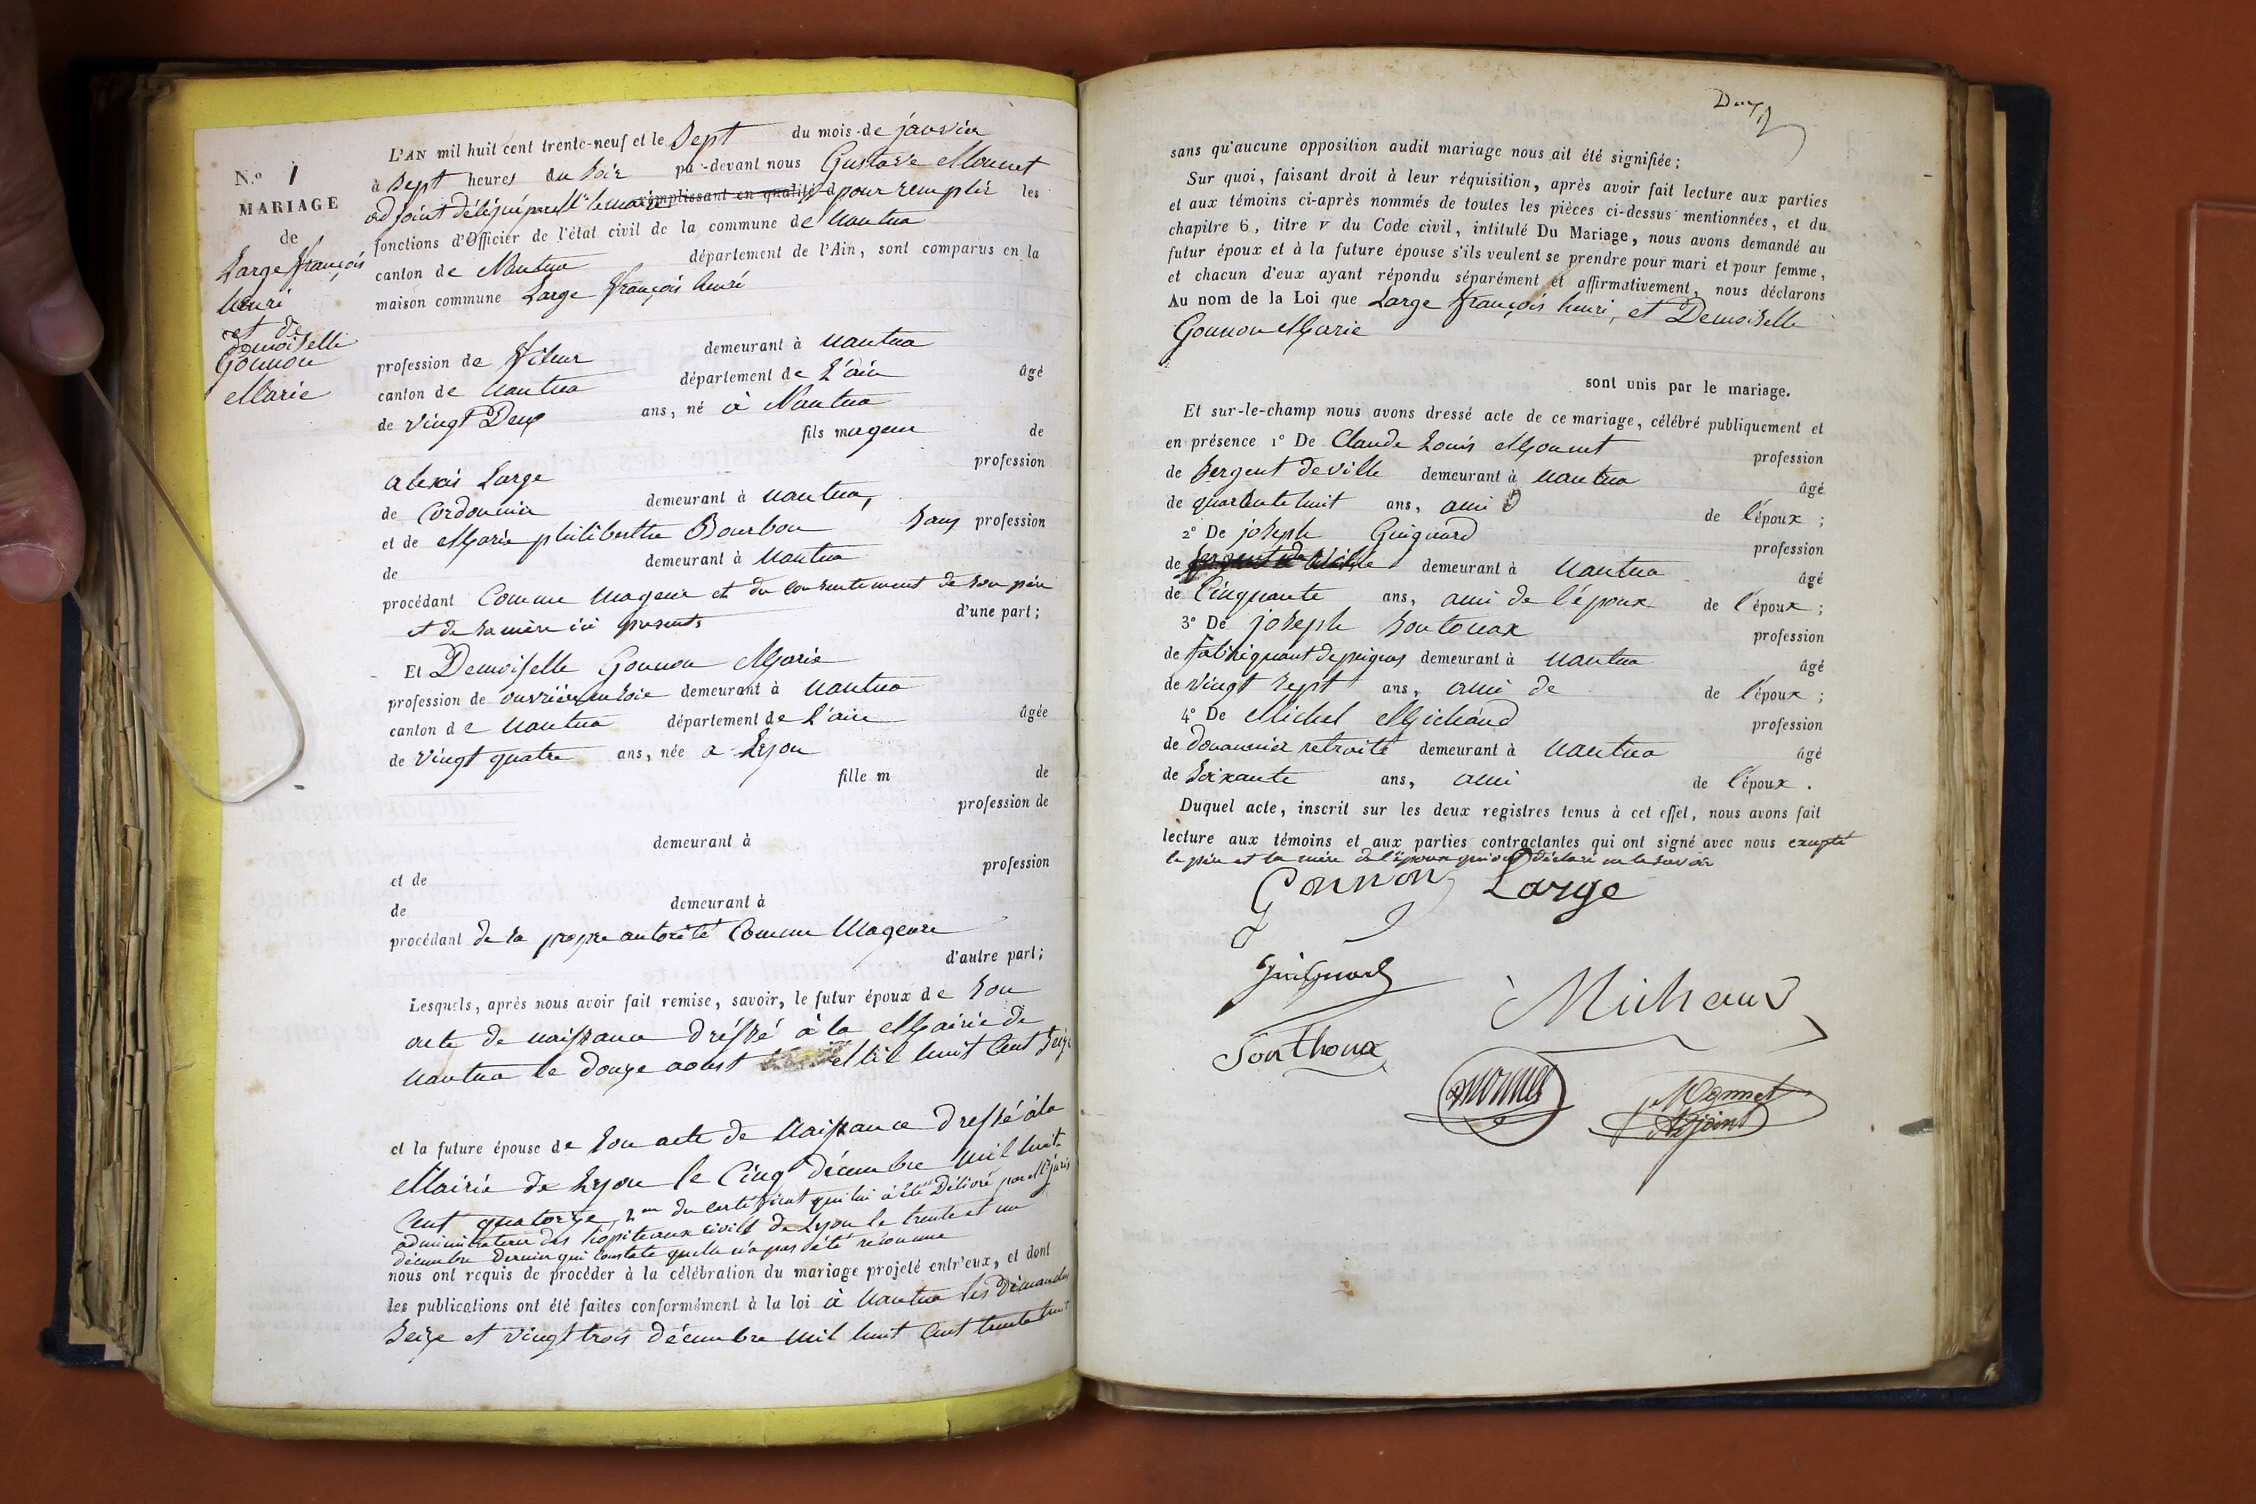 N.o 1
MARIAGE
de
Large françois
henri
et de
Demoiselle
Gonnon
Marie
L'AN mil huit cent trente-neuf et le Sept du mois de janvier
à Sept heures du Soir par-devant nous Gustave Monnet
adjoint délégué par Mr le maire remplissant en qualité d pour remplir les
fonctions d'Officier de l'état civil de la commune de nantua
canton de Nantua département de l'Ain, sont comparus en la
maison commune Large françois henri
profession de fileur demeurant à nantua
canton de nantua département de L'ain âgé
de vingt Deux ans, né à Nantua
fils mageur de
alexis Large profession
de Cordonnier demeurant à nantua,
et de Marie philiberthe Bourbon Sans profession
de demeurant à Nantua
procédant Comme mageur et du consentement de son père
et de sa mère ici presents d'une part;
Et Demoiselle Gonnon Marie
profession de ouvrière en soie demeurant à nantua
canton de nantua département de L'ain âgée
de vingt quatre ans, née a Lyon
fille m de
profession de
demeurant à
et de profession
de demeurant à
procédant de sa propre autorité Comme Mageure
d'autre part;
Lesquels, après nous avoir fait remise, savoir, le futur époux de Son
acte de naissance dréssé à la Mairie de
nantua le douze aoust Mil huit Cent Seize
et la future épouse de Son acte de Naissance dressé à la
Mairie de Lyon le Cinq décembre mil huit
Cent quatorze, 2em du certificat qui lui a été Délivré par
administrateur des hopiteaux civils de Lyon le trente et un
décembre Dernier qui Constate quelle n'a pas été réconnue
nous ont requis de procéder à la célébration du mariage projeté entr'eux, et dont
les publications ont été faites conformément à la loi à Nantua les Dimanches
Seize et vingt trois décembre mil huit Cent trente huit
Deux
sans qu'aucune opposition audit mariage nous ait été signifiée;
Sur quoi, faisant droit à leur réquisition, après avoir fait lecture aux parties
et aux témoins ci-après nommés de toutes les pièces ci-dessus mentionnées, et du
chapitre 6, titre V du Code civil, intitulé Du Mariage, nous avons demandé au
futur époux et à la future épouse s'ils veulent se prendre pour mari et pour femme,
et chacun d'eux ayant répondu séparément et affirmativement, nous déclarons
Au nom de la Loi que Large françois henri, et Demoiselle
Gonnon Marie
sont unis par le mariage.
Et sur-le-champ nous avons dressé acte de ce mariage, célébré publiquement et
en présence 1° De Claude Louis Monnet profession
de Sergent de ville demeurant à nantua âgé
de quarante huit ans, ami de l'époux;
2° De joseph Guignard profession
de demeurant à Nantua âgé
de Cinquante ans, ami de l'époux de l'époux;
3° De joseph Sontouax profession
de fabriquant de peignes demeurant à nantua âgé
de vingt Sept ans, ami de de l'époux;
4° De Michel Michaud profession
de Douannier retraité demeurant à Nantua âgé
de Soixante ans, ami de l'époux.
Duquel acte, inscrit sur les deux registres tenus à cet effet, nous avons fait
lecture aux témoins et aux parties contractantes qui ont signé avec nous excepté
le père et la mère de l'époux qui ont déclaré ne le savoir
Gonnon Large
Guignard
Michaud
Sonthonax
Monnet
Monnet
Adjoint